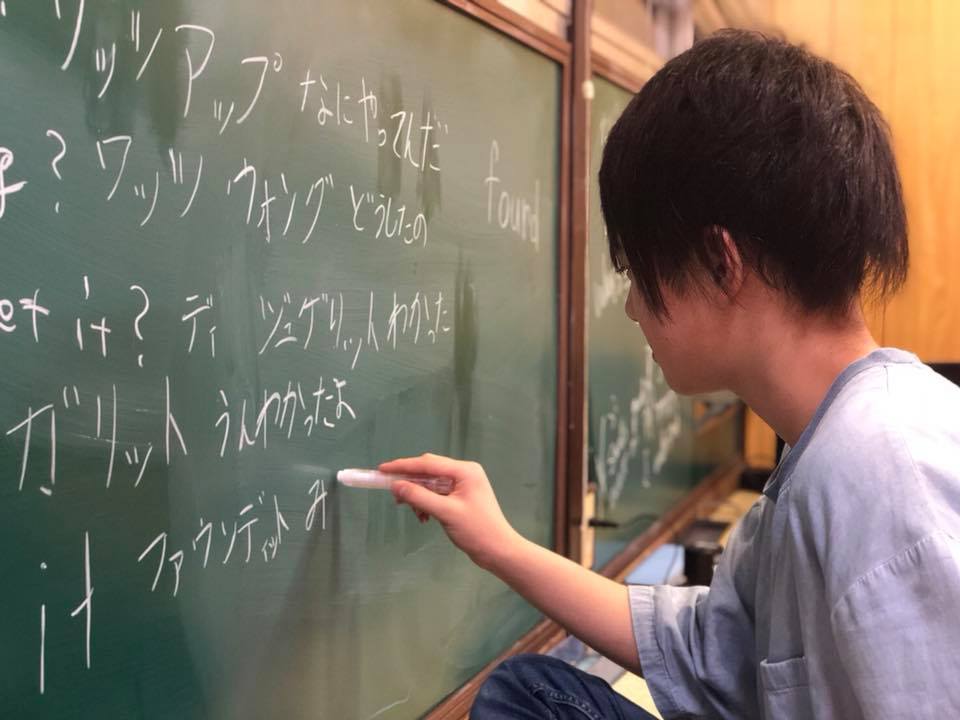 ワッツアップ なにやってんだ
? ワッツ ウォング どうしたの
et it? ディ ジュゲリット わかった
ガリット うんわかったよ
it ファウンディット み
found